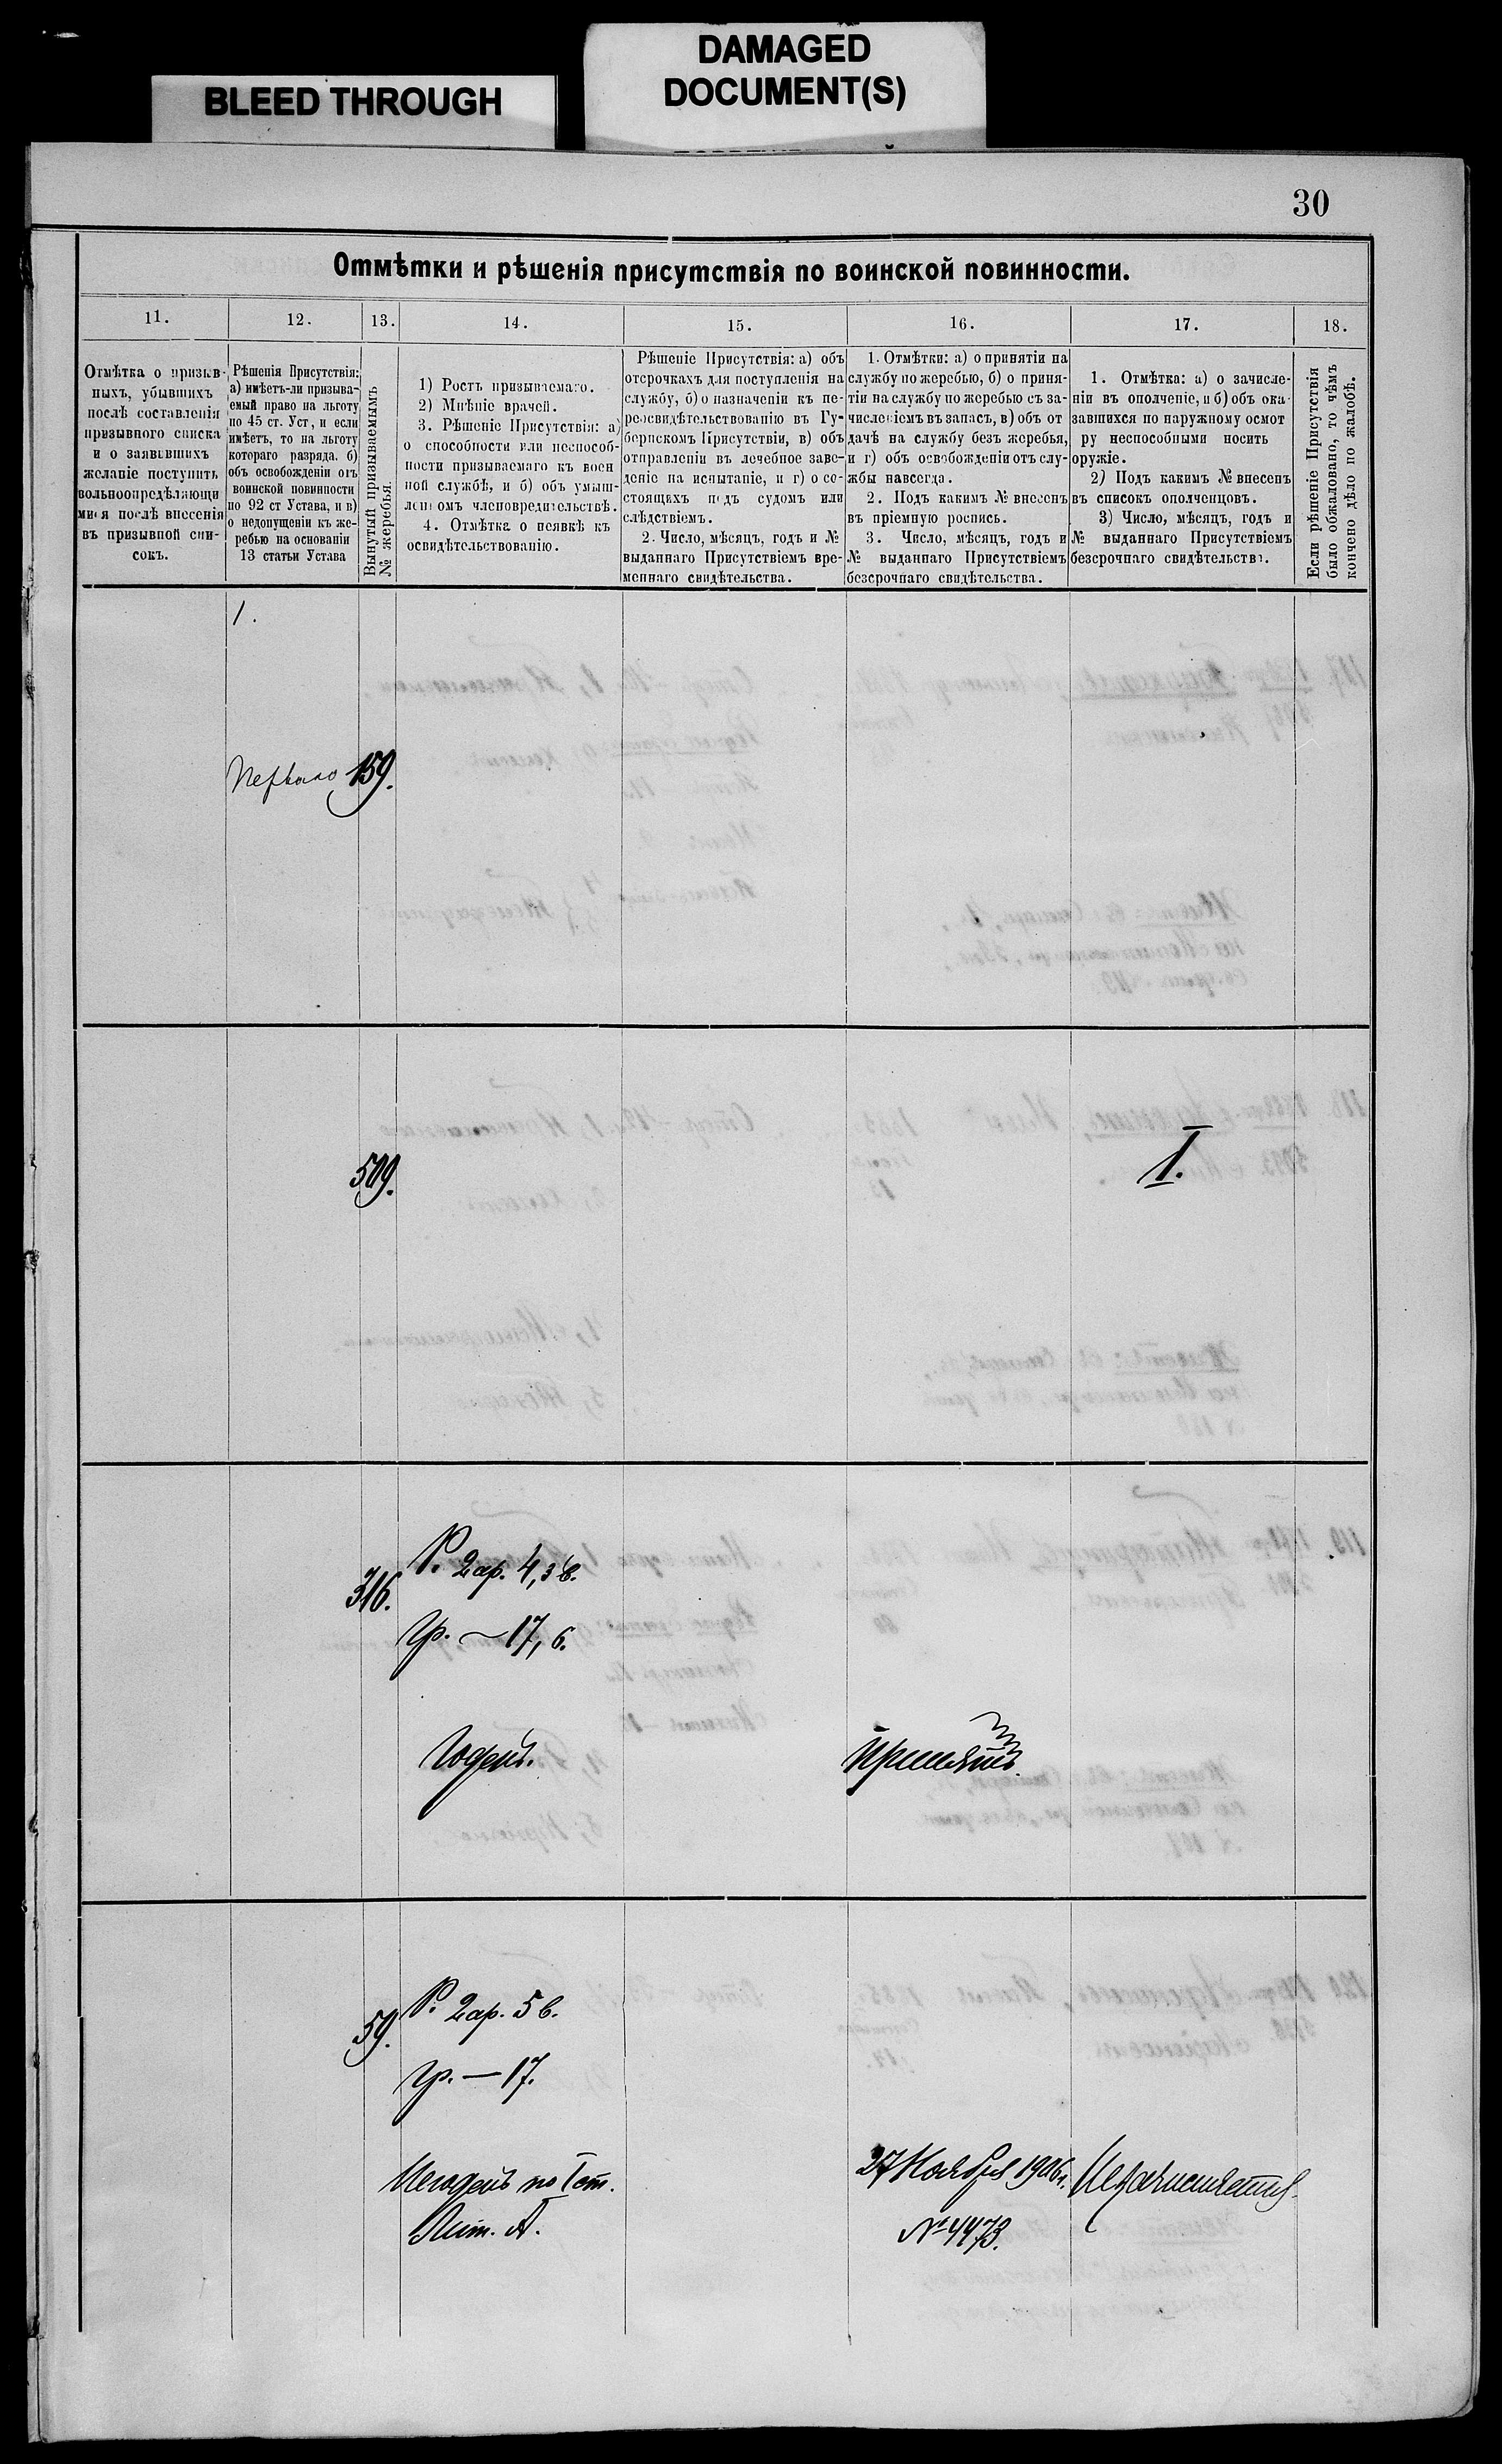 DAMAGED
DOCUMENT(S)
BLEED THROUGH
30
Отмѣтки и рѣшенія присутствія по воинской повинности.
11.
12.
13.
14.
15.
16.
17.
18.
Отмѣтка о призыв-
ныхъ, убывшихъ
послѣ составленія
призывного списка
и о заявившихъ
желаніе поступить
вольноопредѣляющи
мися послѣ внесенія
въ призывной спи-
сокъ.
Рѣшенія Присутствія:
а) имѣетъ-ли призыва-
емый право на льготу
по 45 ст. Уст, и если
имѣетъ, то на льготу
котораго разряда. б)
объ освобожденіи отъ
воинской повинности
по 92 ст Устава, и в)
о недопущеніи къ же-
ребью на основаніи
13 статьи Устава
Вынутый призываемымъ
№ жеребья.
1) Ростъ призываемаго.
2) Мнѣніе врачей.
3. Рѣшеніе Присутствія: а)
о способности или неспособ-
ности призываемаго къ воен
ной службѣ, и б) объ умыш-
леномъ членовредительствѣ.
4. Отмѣтка о неявкѣ къ
освидѣтельствованію.
Рѣшеніе Присутствія: а) объ
отсрочкахъ для поступленія на
службу, б) о назначеніи къ пе-
реосвидѣтельствованію въ Гу-
бернскомъ Присутствіи, в) объ
отправленіи въ лечебное заве-
деніе на испытаніе, и г) о со-
стоящихъ подъ судомъ или
слѣдствіемъ.
2. Число, мѣсяцъ, годъ и №
выданнаго Присутствіемъ вре-
меннаго свидѣтельства.
1. Отмѣтки: а) о принятіи на
службу по жеребью, б) о приня-
тіи на службу по жеребью съ за-
численіемъ въ запасъ, в) объ от
дачѣ на службу безъ жеребья,
и г) объ освобожденіи отъ слу-
жбы навсегда.
2. Подъ какимъ № внесенъ
въ пріемную роспись.
3. Число, мѣсяцъ, годъ и
№ выданнаго Присутствіемъ
безсрочнаго свидѣтельства.
1. Отмѣтка: а) о зачисле-
ніи въ ополченіе, и б) объ ока-
завшихся по наружному осмот
ру неспособными носить
оружіе.
2) Подъ какимъ № внесенъ
въ списокъ ополченцовъ.
3) Число, мѣсяцъ, годъ и
№ выданнаго Присутствіемъ
безсрочнаго свидѣтельства.
Если рѣшеніе Присутствія
было обжаловано, то чѣмъ
кончено дѣло по жалобѣ.
1.
Первато 159.
509.
I.
316.
Р. 2ар. 4,3 в.
Гр. — 17, 6.
Годенъ.
Принятъ.
59.
Р. 2ар. 5 в.
Гр. — 17.
Негоденъ по I ст.
Лит. А.
27 Ноября 1906 г.
№ 4473.
Незачисляется.